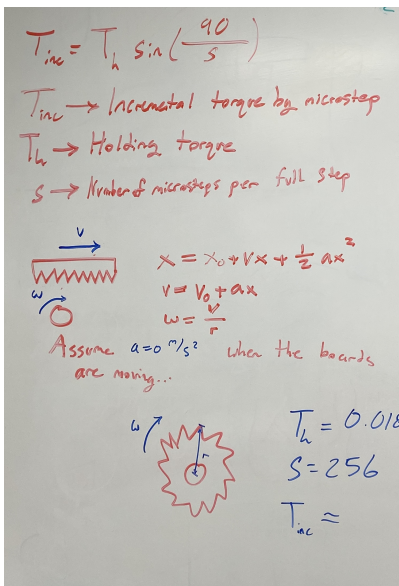 T_inc = T_h sin(90/s)
T_inc → Incremental torque by microstep
T_h → Holding torque
s → Number of microsteps per full step
v
x = x_0 + vx + 1/2 ax^2
v = v_0 + ax
ω
ω = v/r
Assume a=0 m/s^2 when the boards
are moving...
ω
r
T_h = 0.018
S = 256
T_inc ≈